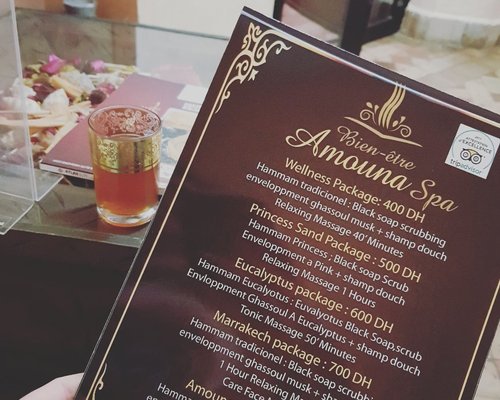 Bien-être
Amouna Spa
ATTESTATION
D'EXCELLENCE
tripadvisor
Wellness Package: 400 DH
Hammam tradicionel : Black soap scrubbing
enveloppment ghassoul musk + shamp douch
Relaxing Massage 40' Minutes
Princess Sand Package : 500 DH
Hammam Princess ; Black soap Scrub
Enveloppment a Pink + shamp douch
Relaxing Massage 1 Hours
Eucalyptus package : 600 DH
Hammam Eucalyotus : Euvalyotus Black Soap,scrub
Envloppment Ghassoul A Eucalyptus + shamp douch
Tonic Massage 50' Minutes
Marrakech package : 700 DH
Hammam tradicionel : Black soap scrubbing
enveloppment ghassoul musk + shamp
1 Hour Relaxing
Care Face
Amoun
Hamma